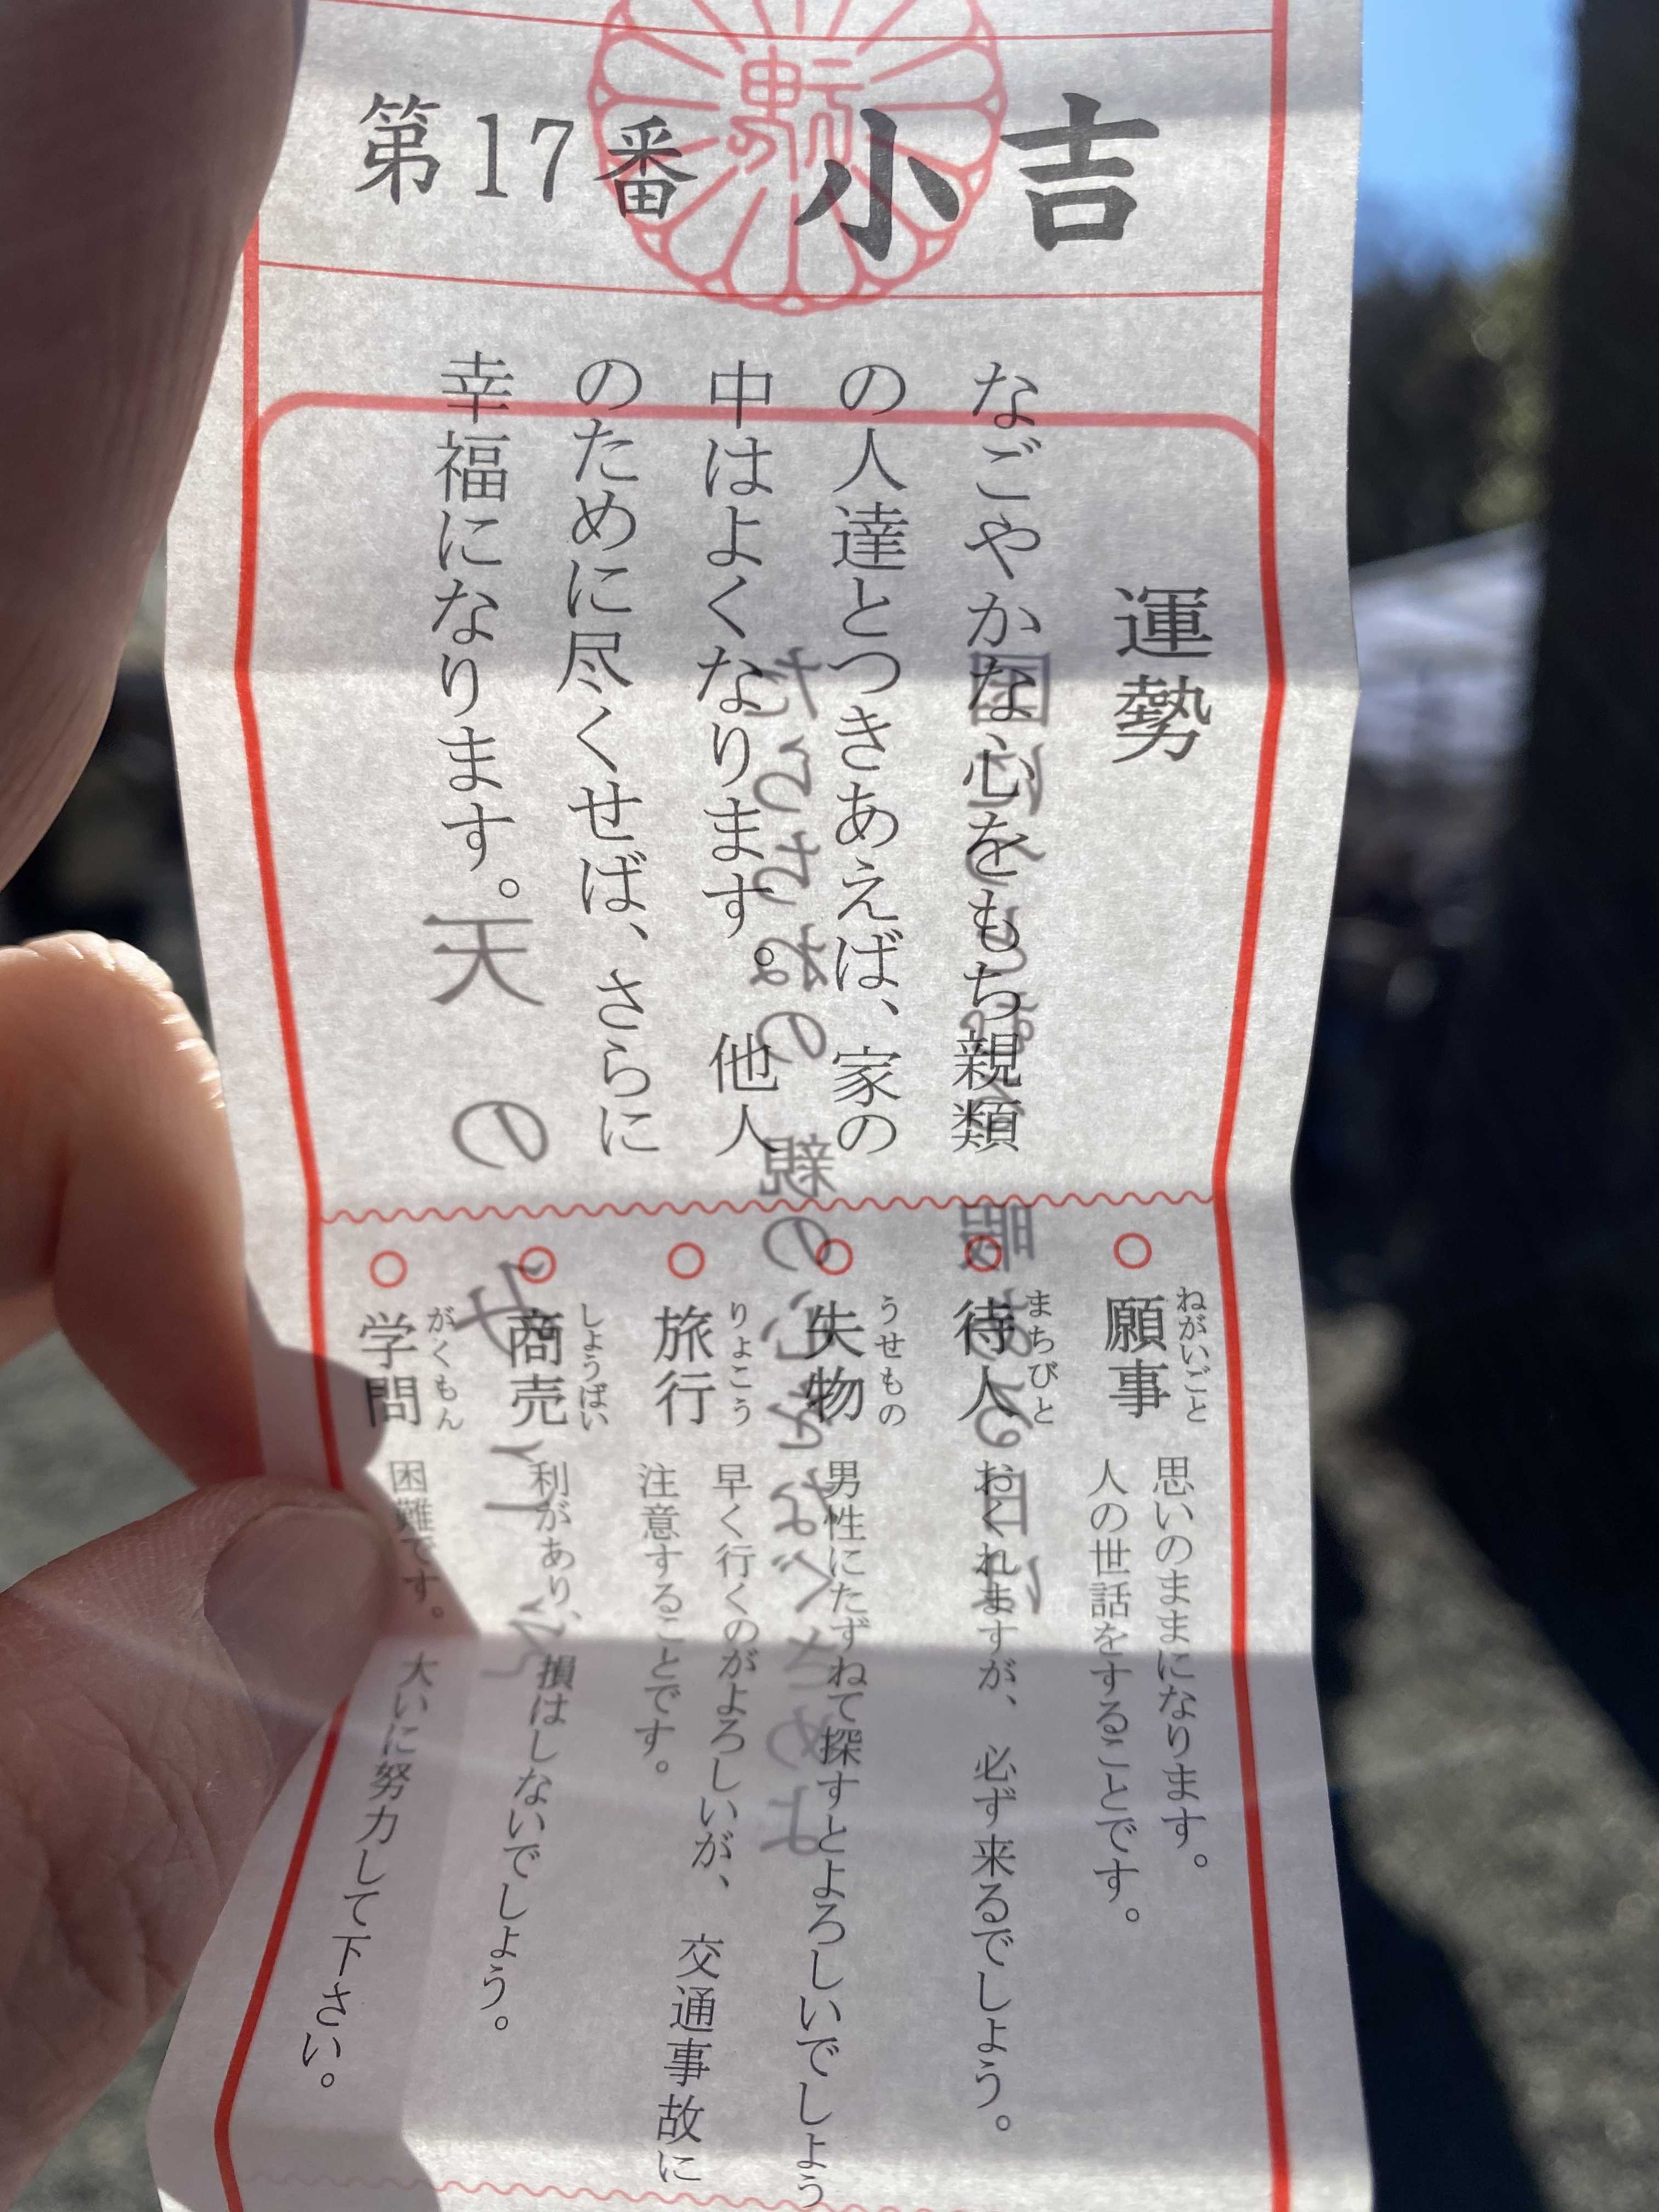 第17番 小吉
運勢
なごやかな心をもち親類
の人達とつきあえば、家の
中はよくなります。他人
のために尽くせば、さらに
幸福になります。
願事 ねがいごと
思いのままになります。
人の世話をすることです。
待人 まちびと
おくれますが、必ず来るでしょう。
失物 うせもの
男性にたずねて探すとよろしいでしょう
旅行 りょこう
早く行くのがよろしいが、交通事故に
注意することです。
商売 しょうばい
利があり、損はしないでしょう。
学問 がくもん
困難です。大いに努力して下さい。
天のみこゑ
たらちねの 親の心をなぐさめよ
国につとむる 暇ある日は